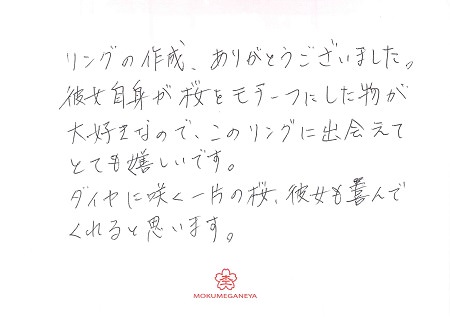 リングの作成、ありがとうございました。
彼女自身が桜をモチーフにした物が
大好きなので、このリングに出会えて
とても嬉しいです。
ダイヤに咲く一片の桜、彼女も喜んで
くれると思います。
MOKUMEGANEYA